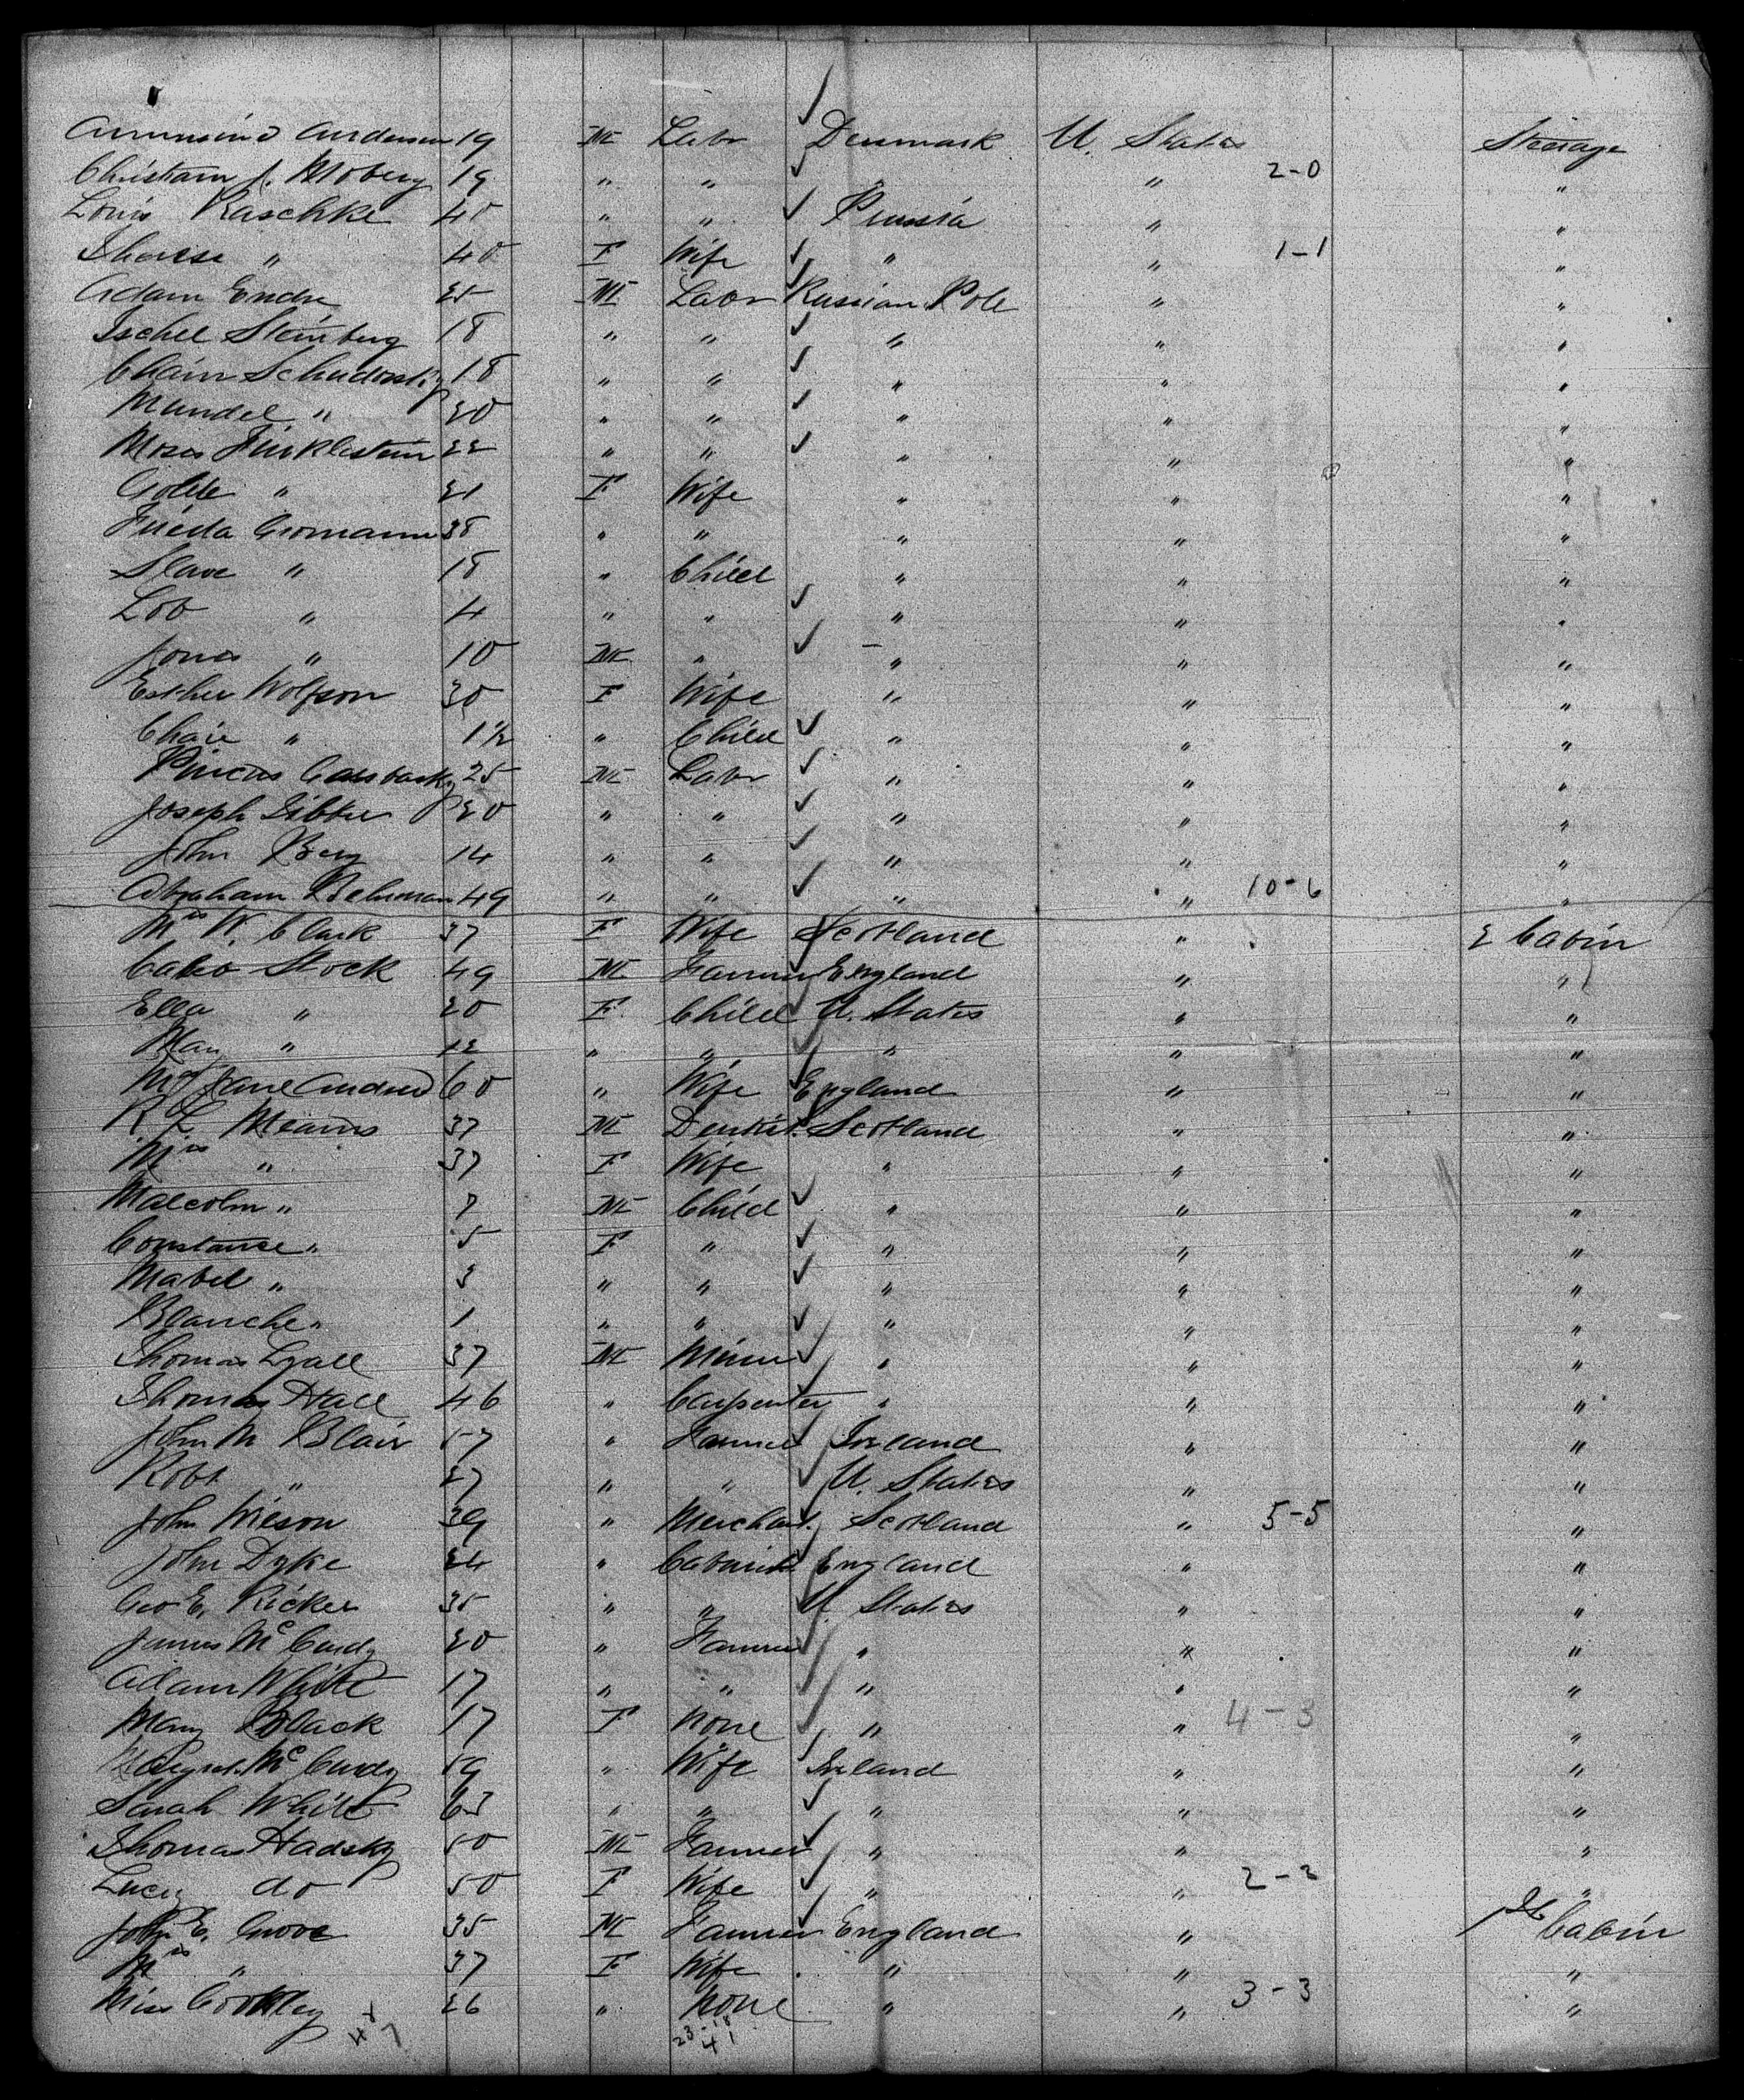 Ammund Andersen 19 M Labr Denmark U. States Steerage
Christian J. Moberg 19 " " " " 2-0 "
Louis Raschke 40 " " Prussia " "
Therese " 40 F Wife " " 1-1 "
Adam Endre 25 M Labr Russian Pole " "
Ischel Steinberg 18 " " " " "
Chaim Schudosky 18 " " " " "
Mandel " 20 " " " " "
Moses Finklestein 22 " " " " "
Golde " 21 F Wife " " "
Frieda Gromann 38 " " " " "
Slave " 18 " Child " " "
Lob " 4 " " " " "
Jones " 10 M " " " "
Esther Wolfson 30 F Wife " " "
Chaie " 1½ " Child " " "
Pincus 25 M Labr " " "
Joseph 20 " " " " "
John Berg 14 " " " " "
Abraham Behrman 49 " " " " 10-6 "
Mrs W. Clark 37 F Wife Scotland " 2 Cabin
Stock 49 M Farmer England " "
Ella " 20 F Child U. States " "
May " 12 " " " " "
Mrs Jane Andrew 60 " Wife England " "
R L Mearns 37 M Dentist Scotland " "
Mrs " 37 F Wife " " "
Malcolm " 7 M Child " " "
Constance " 5 F " " " "
Mabel " 3 " " " " "
Blanche " 1 " " " " "
Thomas Lyall 37 M Miner " " "
Thomas Hall 46 " Carpenter " " "
John M Blair 57 " Farmer Ireland " "
Robt " 27 " " U. States " "
John Wilson 39 " Merchant Scotland " 5-5 "
John Dyke 24 " England " "
Geo E. Ricker 35 " " U. States " "
James McCurdy 20 " Farmer " " "
Adam White 17 " " " " "
Mary Black 17 F None " " 4-3 "
McCurdy 59 " Wife Ireland " "
Sarah White 63 " " " " "
Thomas Hadsky 50 M Farmer " " "
Lucy do 50 F Wife " " 2-2 "
John E. Grove 35 M Farmer England " 1st Cabin
Mrs " 37 F Wife " " "
Miss 26 " None " " 3-3 "
48 7 23-18
41